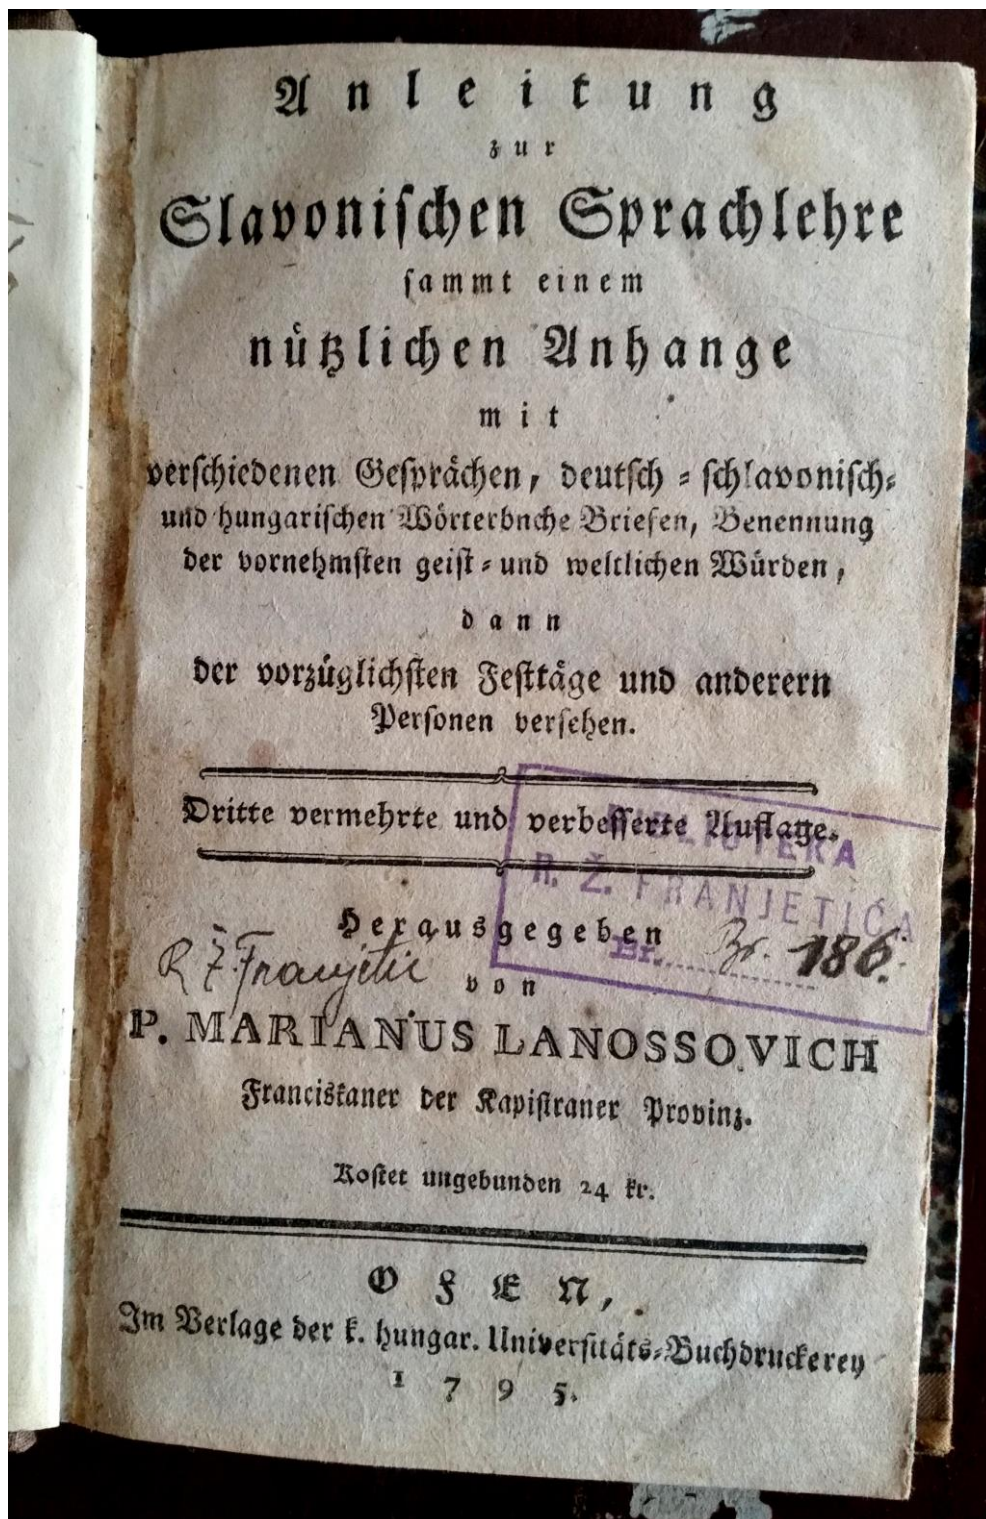 Anleitung
zur
Slavonischen Sprachlehre
sammt einem
nützlichen Anhange
mit
verschiedenen Gesprächen, deutsch-schlavonisch-
und hungarischen Wörterbnche Briefen, Benennung
der vornehmsten geist-und weltlichen Würden,
dann
der vorzüglichsten Festtäge und anderern
Personen versehen.
Dritte vermehrte und verbesserte Auflage.
BIBLIOTEKA
R. Ž. FRANJETIĆA
Br. Br. 186.
Herausgegeben
R Ž. Franjetić
von
P. MARIANUS LANOSSOVICH
Franciskaner der Kapistraner Provinz.
Kostet ungebunden 24 kr.
OFEN,
Im Verlage der k. hungar. Universitäts-Buchdruckerey
1795.